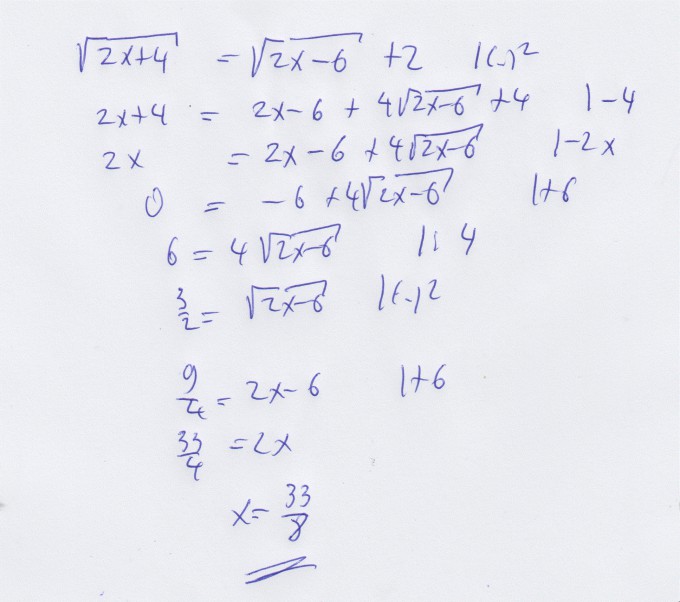 √(2x+4) = √(2x-6) + 2 |(..)²
2x+4 = 2x-6 + 4√(2x-6) + 4 |-4
2x = 2x-6 + 4√(2x-6) |-2x
0 = -6 + 4√(2x-6) |+6
6 = 4√(2x-6) |: 4
3/2 = √(2x-6) |(..)²
9/4 = 2x-6 |+6
33/4 = 2x
x = 33/8